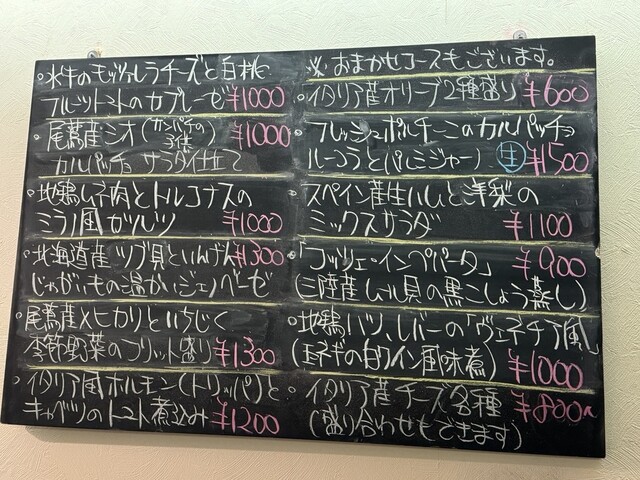 。水牛のモッツァレラチーズと白桃、
フルーツトマトのカプレーゼ ¥1000
。尾鷲産シオ(カンパチの子供) ¥1000
カルパッチョ サラダ仕立て
。地鶏ムネ肉とトルコナスの
ミラノ風カツレツ ¥1000
。北海道産ツブ貝といんげん ¥1300
じゃがいもの温かいジェノベーゼ
。尾鷲産メヒカリといちじく
季節野菜のフリット盛り ¥1300
。イタリア風ホルモン(トリッパ)と
キャベツのトマト煮込み ¥1200
※おまかせコースもございます。
。イタリア産オリーブ2種盛り ¥600
。フレッシュポルチーニのカルパッチョ
ルーコラとパルミジャーノ 生 ¥1500
。スペイン産生ハムと洋梨の
ミックスサラダ ¥1100
。「コッツェ・インペパータ」 ¥900
(三陸産ムール貝の黒こしょう蒸し)
。地鶏ハツ、レバーの「ヴェネチア風」
(玉ネギの白ワイン風味煮) ¥1000
。イタリア産チーズ各種 ¥800〜
(盛り合わせもできます)